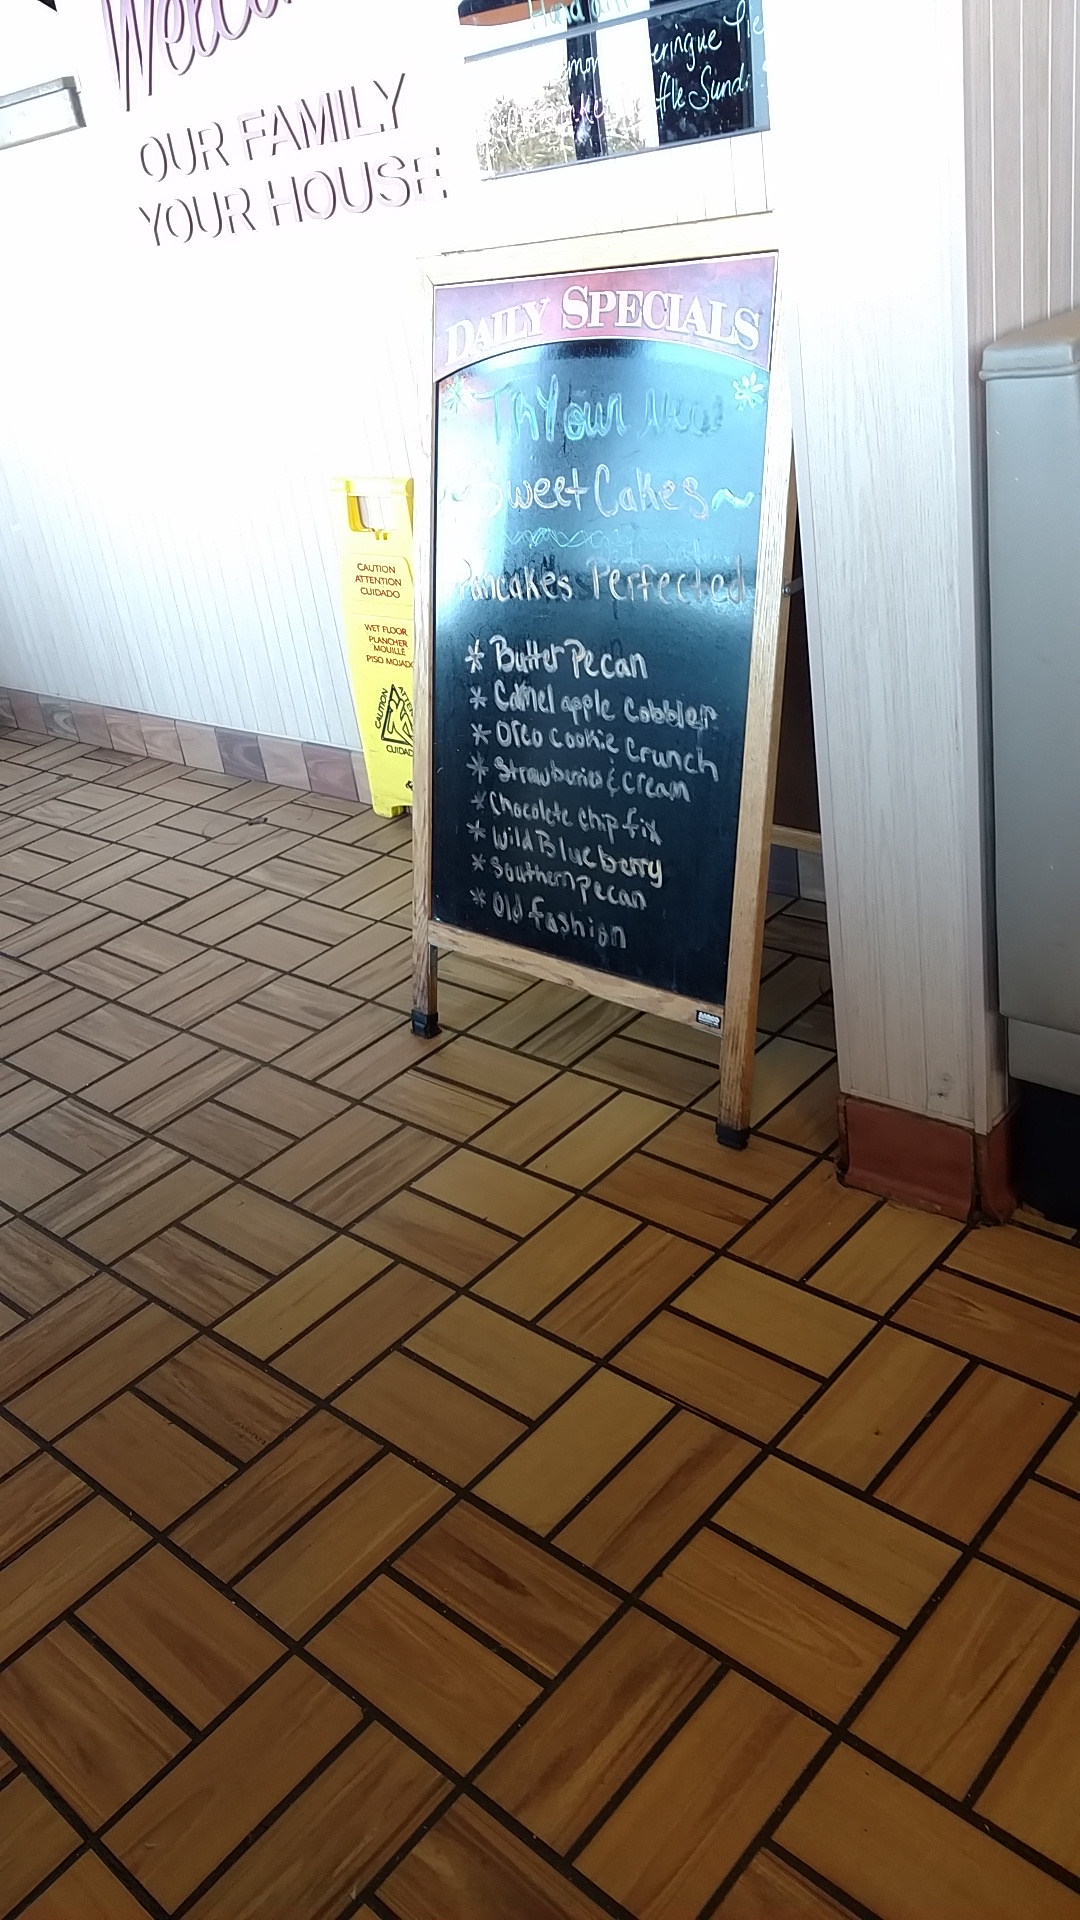 OUR FAMILY
YOUR HOUSE
eringue Pie
ffle Sund
DAILY SPECIALS
Try Our New
~Sweet Cakes~
Pancakes Perfected
* Butter Pecan
* Carmel apple cobbler
* Oreo cookie crunch
* Strawberries & cream
* Chocolate chip fix
* Wild Blueberry
* Southern pecan
* Old fashion
CAUTION
ATTENTION
CUIDADO
WET FLOOR
PLANCHER
MOUILLÉ
PISO MOJADO
CAUTION
CUIDAD